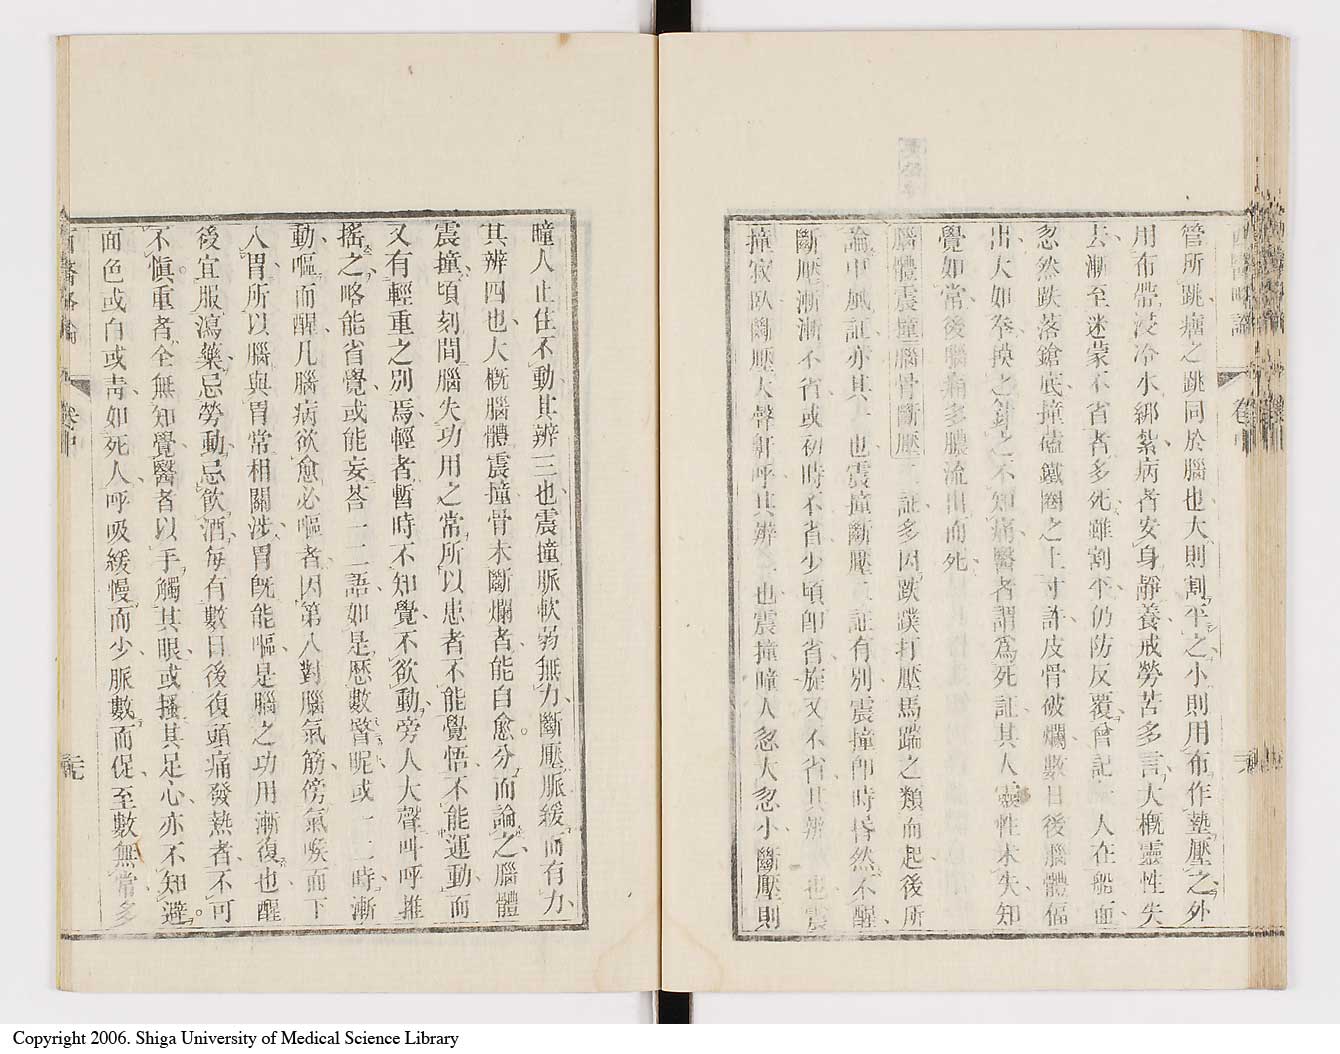 管所跳癗之跳同於腦也大則割平之小則用布作墊壓之外
用布帶浸冷水綁紮病者安身靜養戒勞苦多言大概靈性失
去漸至迷蒙不省者多死雖割平仍防反覆曾記一人在船面
忽然跌落艙底撞磕鐵圈之上寸許皮骨破爛數日後腦體偪
出大如拳挾之針之不知痛醫者謂為死証其人靈性未失知
覺如常後腦痛多膿流出而死
腦體震撞腦骨斷壓二証多因跌蹼打壓馬踹之類而起後所
論中風証亦其一也震撞斷壓二証有別震撞即時昏然不醒
斷壓漸漸不省或初時不省少頃即省旋又不省其辨一也震
撞寂臥斷壓大聲鼾呼其辨二也震撞瞳人忽大忽小斷壓則
瞳人止住不動其辨三也震撞脈軟弱無力斷壓脈緩而有力
其辨四也大概腦體震撞骨未斷爛者能自愈分而論之腦體
震撞頃刻間腦失功用之常所以患者不能覺悟不能運動而
又有輕重之別焉輕者暫時不知覺不欲動旁人大聲叫呼推
搖之略能省覺或能妄荅一二語如是歷數晷昵或一二時漸
動嘔而醒凡腦病欲愈必嘔者因第八對腦氣筋傍氣喉而下
入胃所以腦與胃常相關涉胃既能嘔是腦之功用漸復也醒
後宜服瀉藥忌勞動忌飲酒每有數日後復頭痛發熱者不可
不慎重者全無知覺醫者以手觸其眼或搔其足心亦不知避
面色或白或青如死人呼吸緩慢而少脈數而促至數無常多
西醫略論
卷中
Copyright 2006. Shiga University of Medical Science Library